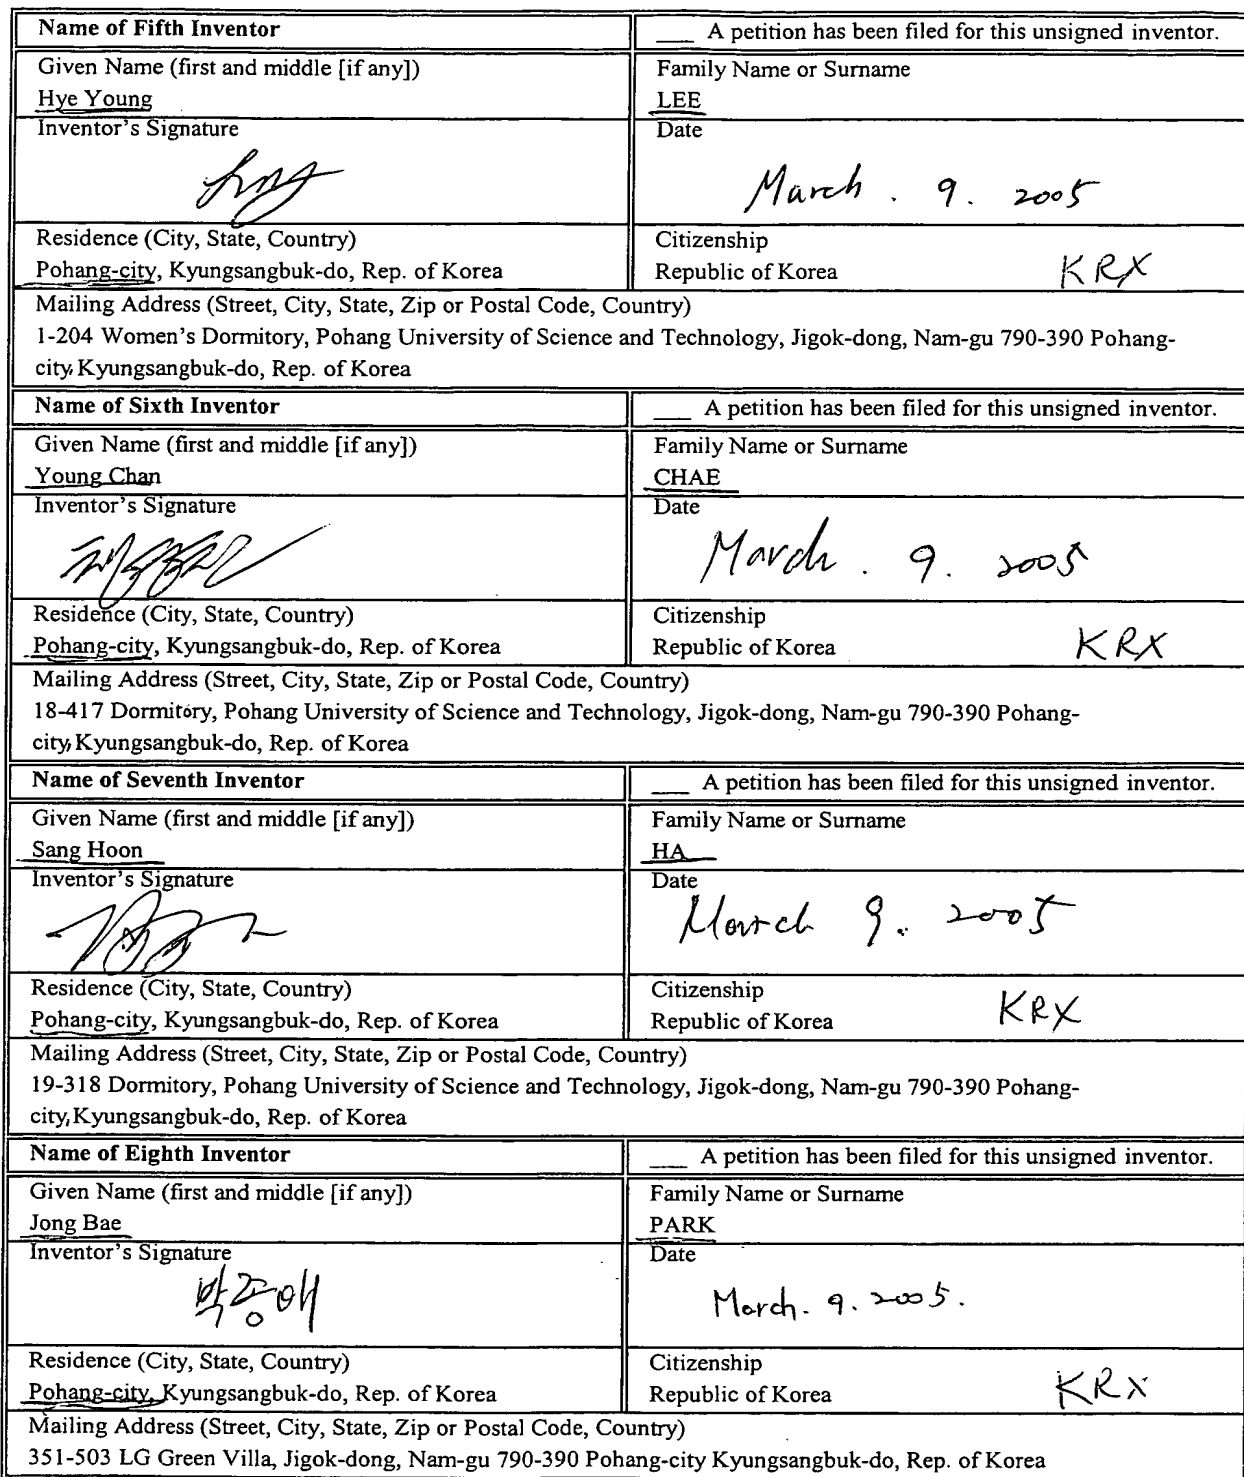 Name of Fifth Inventor
___ A petition has been filed for this unsigned inventor.
Given Name (first and middle [if any])
Family Name or Surname
Hye Young
LEE
Inventor's Signature
Date
March. 9. 2005
Residence (City, State, Country)
Citizenship
Pohang-city, Kyungsangbuk-do, Rep. of Korea
Republic of Korea
KRX
Mailing Address (Street, City, State, Zip or Postal Code, Country)
1-204 Women's Dormitory, Pohang University of Science and Technology, Jigok-dong, Nam-gu 790-390 Pohang-
city, Kyungsangbuk-do, Rep. of Korea
Name of Sixth Inventor
___ A petition has been filed for this unsigned inventor.
Given Name (first and middle [if any])
Family Name or Surname
Young Chan
CHAE
Inventor's Signature
Date
March. 9. 2005
Residence (City, State, Country)
Citizenship
Pohang-city, Kyungsangbuk-do, Rep. of Korea
Republic of Korea
KRX
Mailing Address (Street, City, State, Zip or Postal Code, Country)
18-417 Dormitory, Pohang University of Science and Technology, Jigok-dong, Nam-gu 790-390 Pohang-
city, Kyungsangbuk-do, Rep. of Korea
Name of Seventh Inventor
___ A petition has been filed for this unsigned inventor.
Given Name (first and middle [if any])
Family Name or Surname
Sang Hoon
HA
Inventor's Signature
Date
March 9. 2005
Residence (City, State, Country)
Citizenship
Pohang-city, Kyungsangbuk-do, Rep. of Korea
Republic of Korea
KRX
Mailing Address (Street, City, State, Zip or Postal Code, Country)
19-318 Dormitory, Pohang University of Science and Technology, Jigok-dong, Nam-gu 790-390 Pohang-
city, Kyungsangbuk-do, Rep. of Korea
Name of Eighth Inventor
___ A petition has been filed for this unsigned inventor.
Given Name (first and middle [if any])
Family Name or Surname
Jong Bae
PARK
Inventor's Signature
Date
March. 9. 2005.
Residence (City, State, Country)
Citizenship
Pohang-city, Kyungsangbuk-do, Rep. of Korea
Republic of Korea
KRX
Mailing Address (Street, City, State, Zip or Postal Code, Country)
351-503 LG Green Villa, Jigok-dong, Nam-gu 790-390 Pohang-city Kyungsangbuk-do, Rep. of Korea